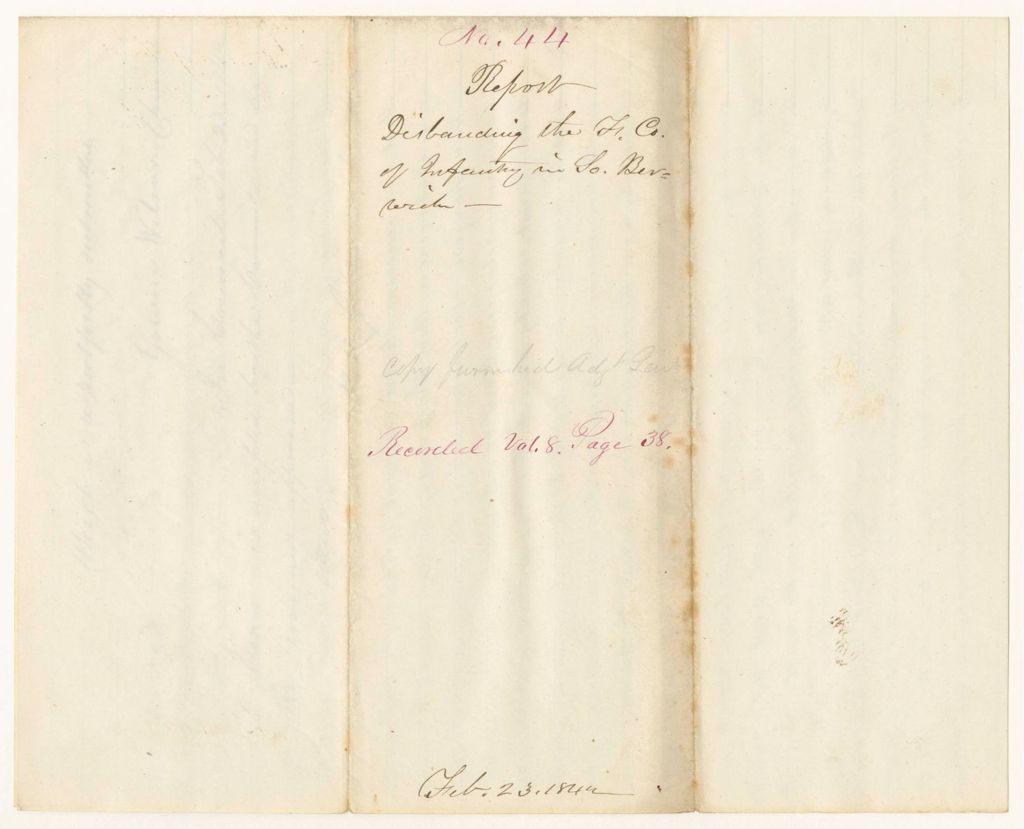 No. 44
Report
Disbanding the F. Co.
of Infantry in So. Ber=
wick —
Copy furnished Adjt Genl
Recorded Vol. 8. Page 38.
Feb. 23. 1842